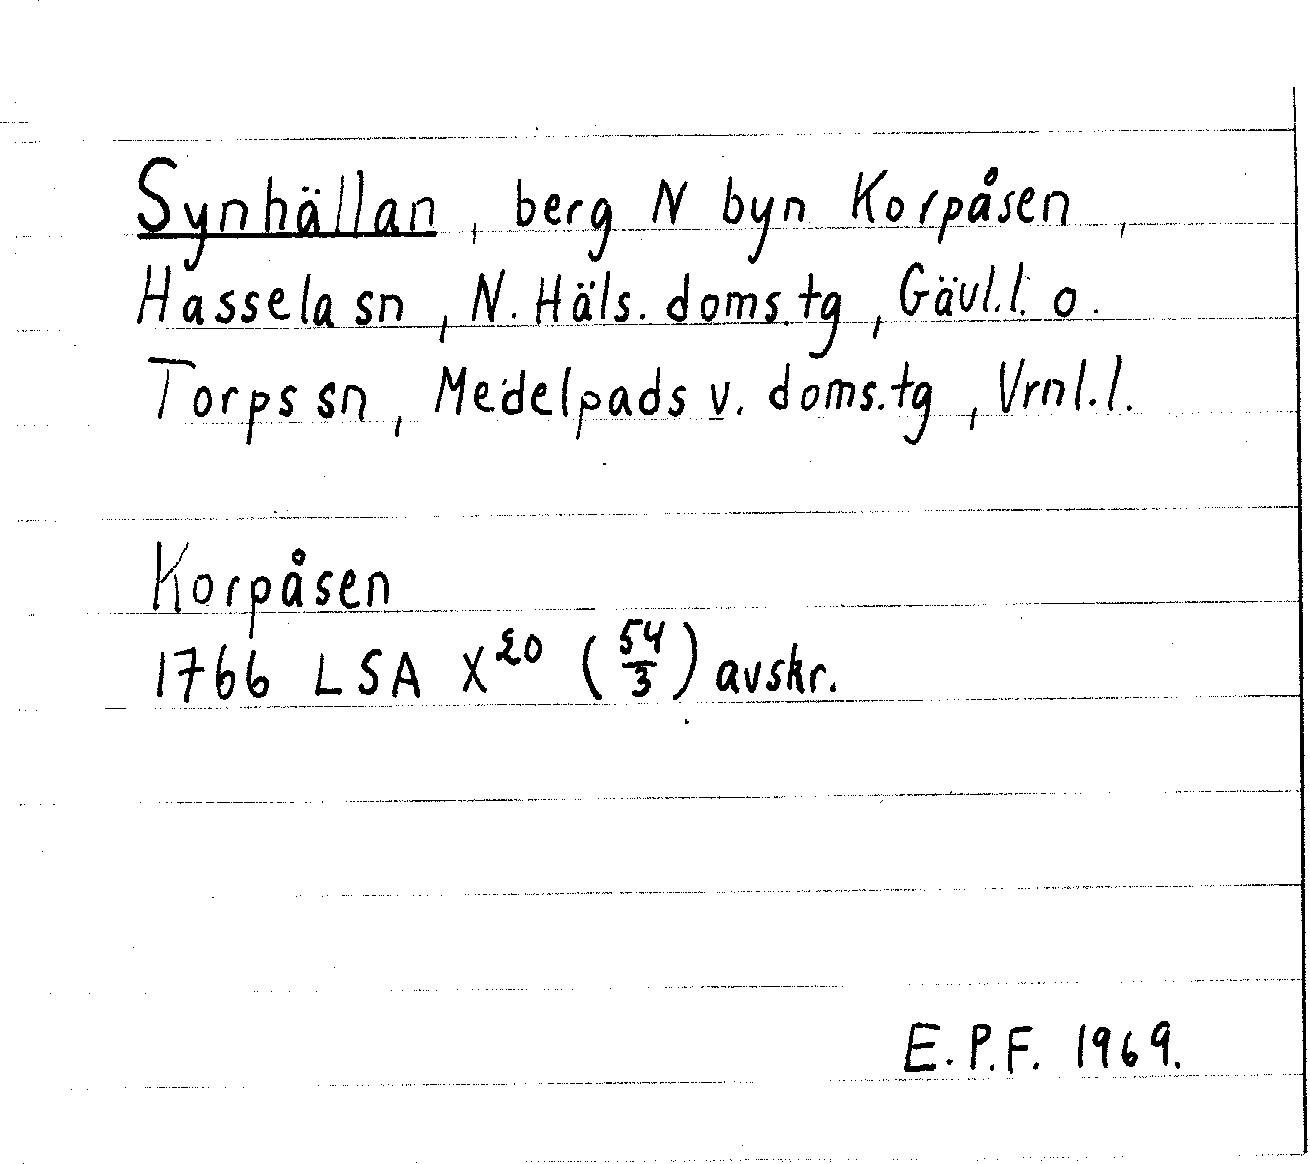 Synhällan, berg N byn Korpåsen,
Hassela sn, N. Häls. doms.tg, Gävl.l. o.
Torps sn, Medelpads v. doms.tg, Vrnl.l.
Korpåsen
1766 LSA X²⁰ (54/3) avskr.
E.P.F. 1969.